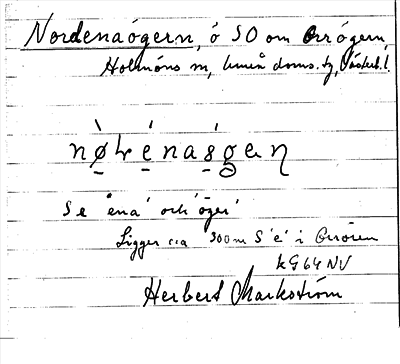 Nordenaögern, ö SO om Orrögern,
Holmöns sn, Umeå doms.tg, Västerb.l.
nø̀ɫénaśgeɳ
Se ena' och 'öger'
Ligger c:a 300 m S 'e' i Orrören
kG64 NV
Herbert Markström